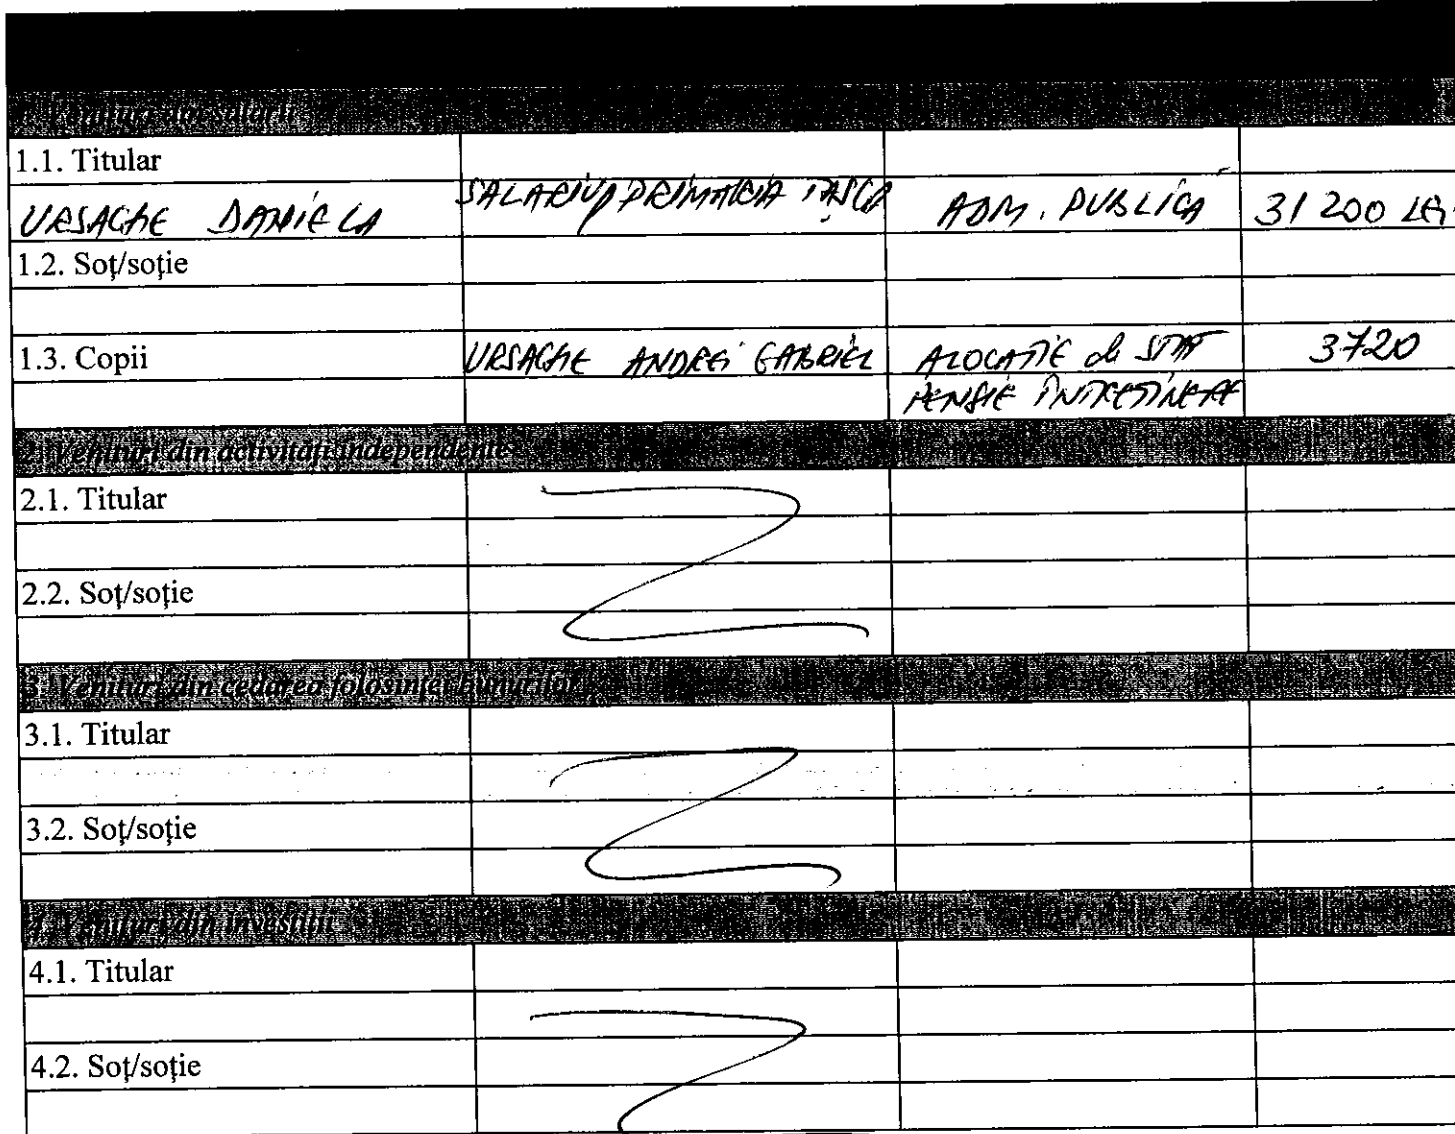 1. Venituri din salarii
1.1. Titular
URSACHE DANIELA SALARIU PRIMARIA TAȘCA ADM. PUBLICĂ 31 200 LEI
1.2. Soţ/soţie
1.3. Copii URSACHE ANDREI GABRIEL ALOCAȚIE de STAT 3720
PENSIE ÎNTREȚINERE
2. Venituri din activităţi independente
2.1. Titular
2.2. Soţ/soţie
3. Venituri din cedarea folosinţei bunurilor
3.1. Titular
3.2. Soţ/soţie
4. Venituri din investiţii
4.1. Titular
4.2. Soţ/soţie